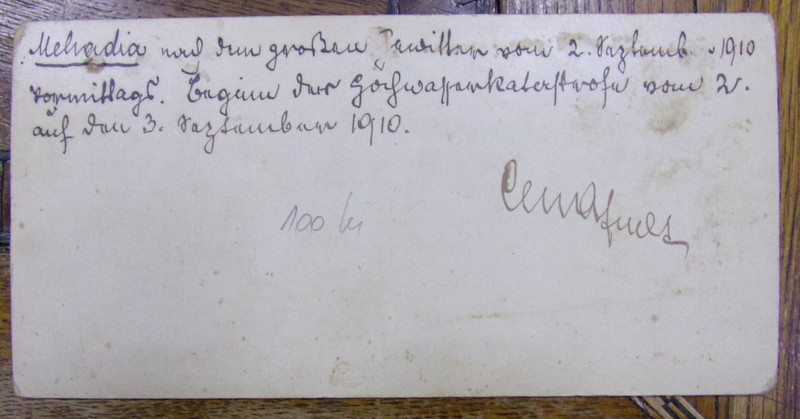 Mehadia nach dem großen Gewitter vom 2. Septemb. 1910
vormittags. Beginn der Hochwasserkatastrofe vom 2.
auf den 3. September 1910.
100 lei